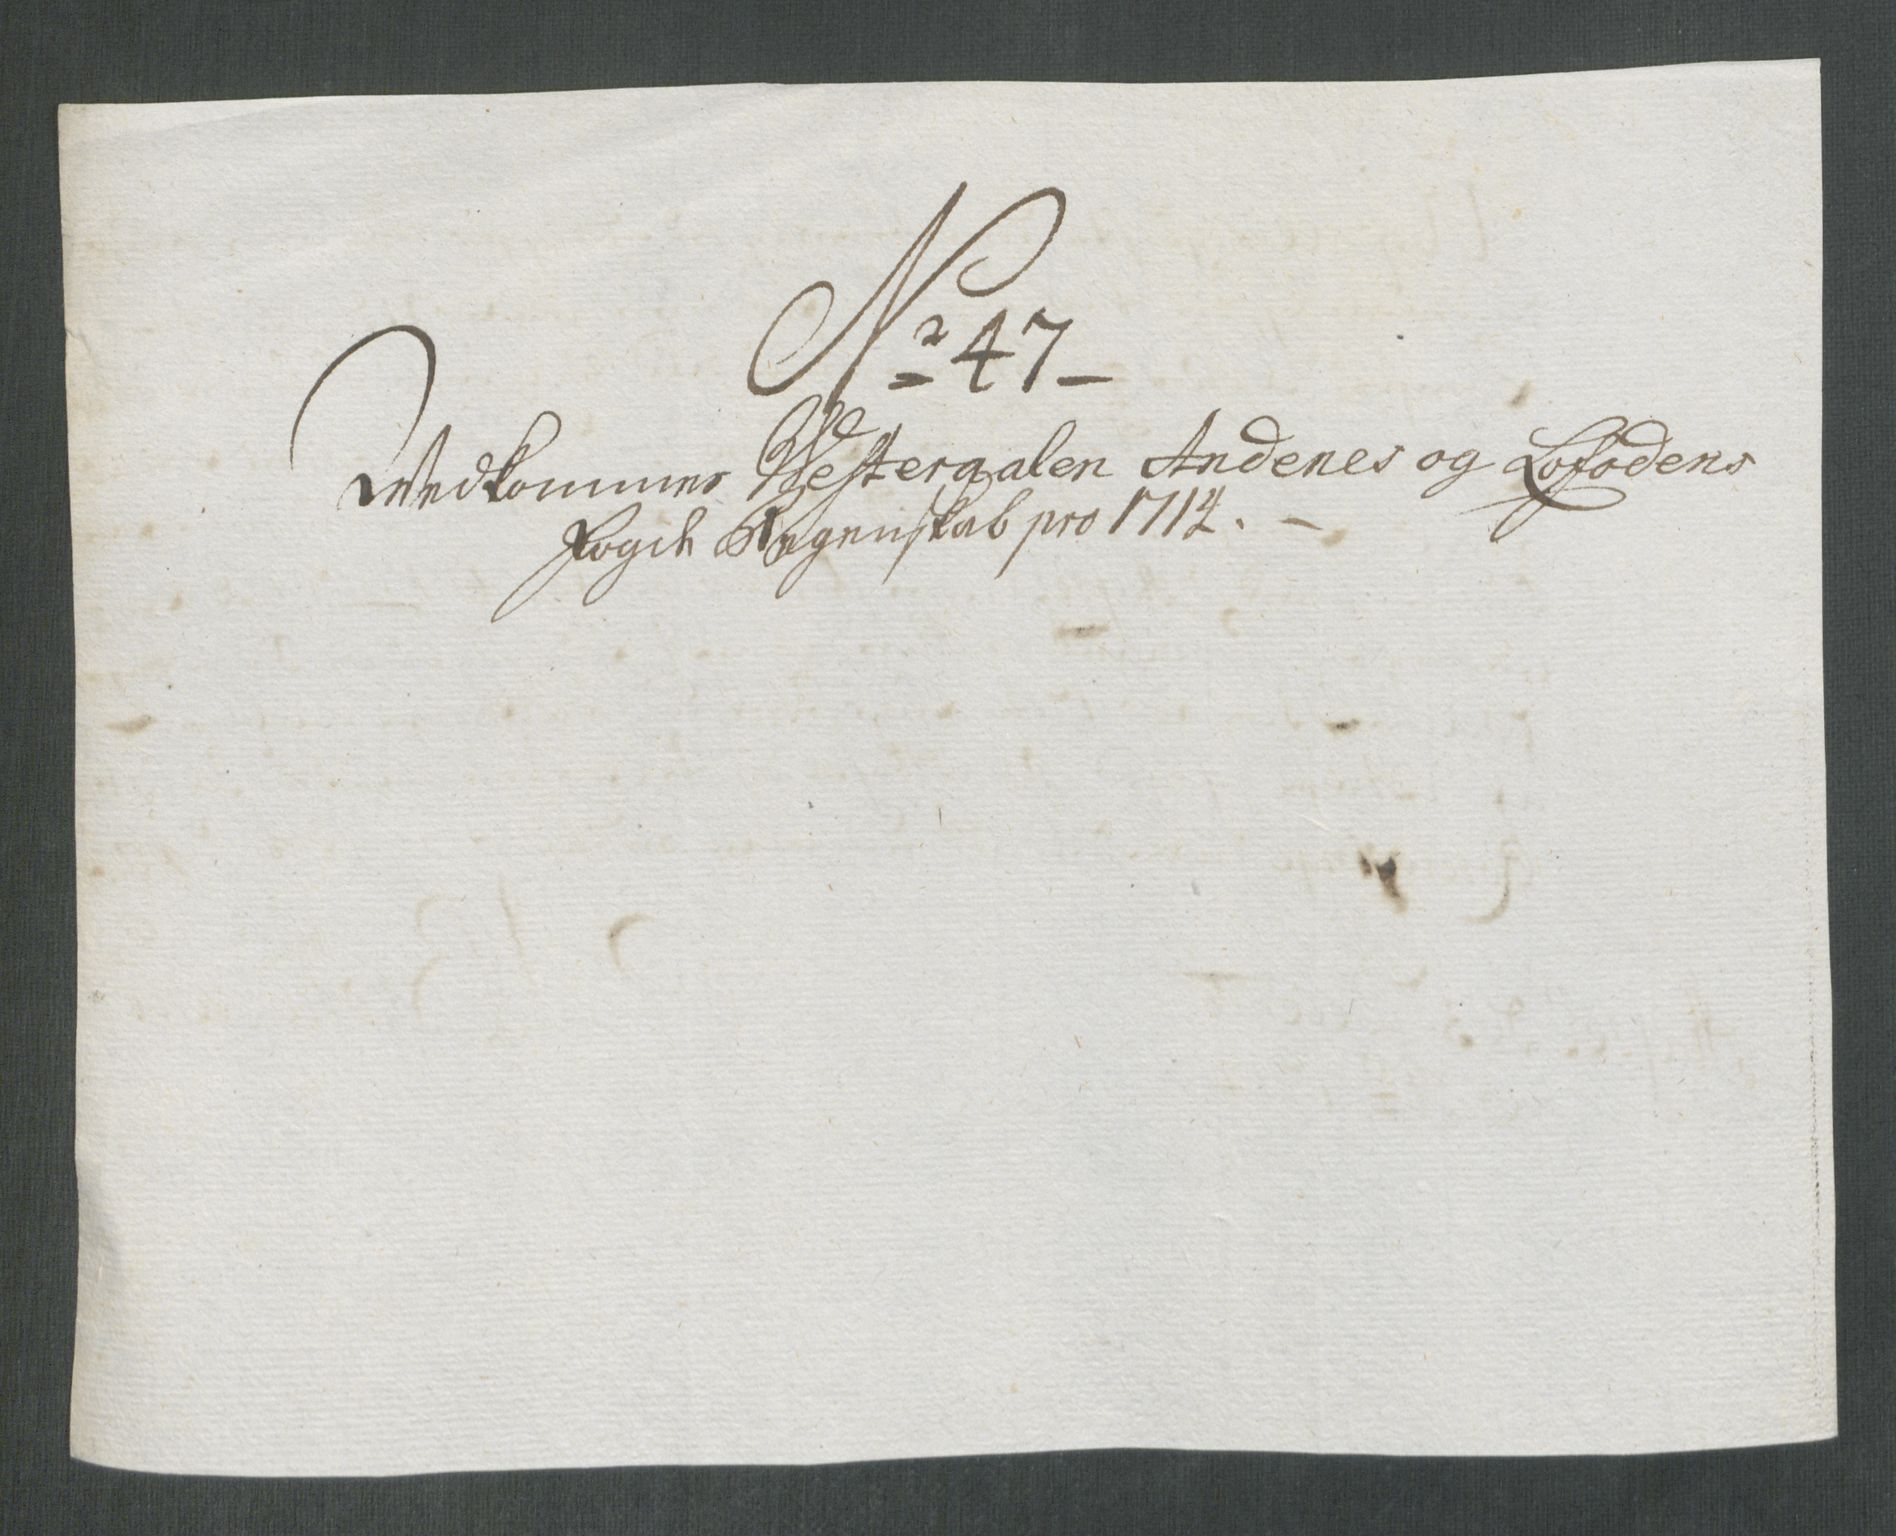 No 47
Vedkommer Westeraalen Andenes og Lofodens
Fogd: Regenskab pro 1714.